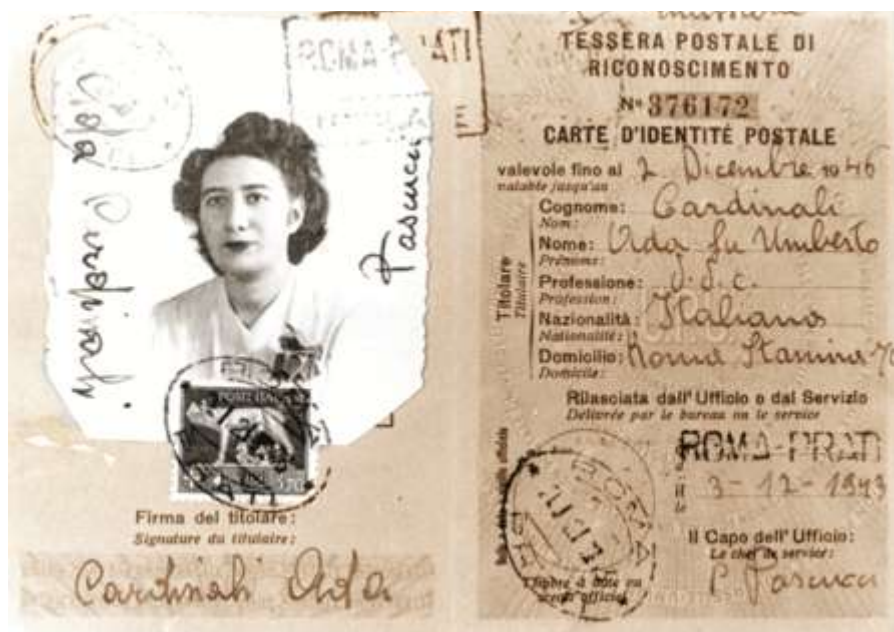 Ada Cardinali
ROMA-PRATI
Pascucci
POSTE ITALIANE
Firma del titolare:
Signature du titulaire:
Cardinali Ada
TESSERA POSTALE DI
RICONOSCIMENTO
No 376172
CARTE D'IDENTITÉ POSTALE
valevole fino al 2 Dicembre 1946
valable jusqu'au
Titolare
Titulaire
Cognome: Cardinali
Nom:
Nome: Ada fu Umberto
Prénoms:
Professione:
Profession:
Nazionalità: Italiana
Nationalité:
Domicilio: Roma
Domicile:
Rilasciata dall'Ufficio o dal Servizio
Délivrée par le bureau ou le service
ROMA-PRATI
il 3-12-1943
le
Il Capo dell'Ufficio:
Le chef de service:
P. Pascucci
Timbre à date ou
cachet officiel
ROMA